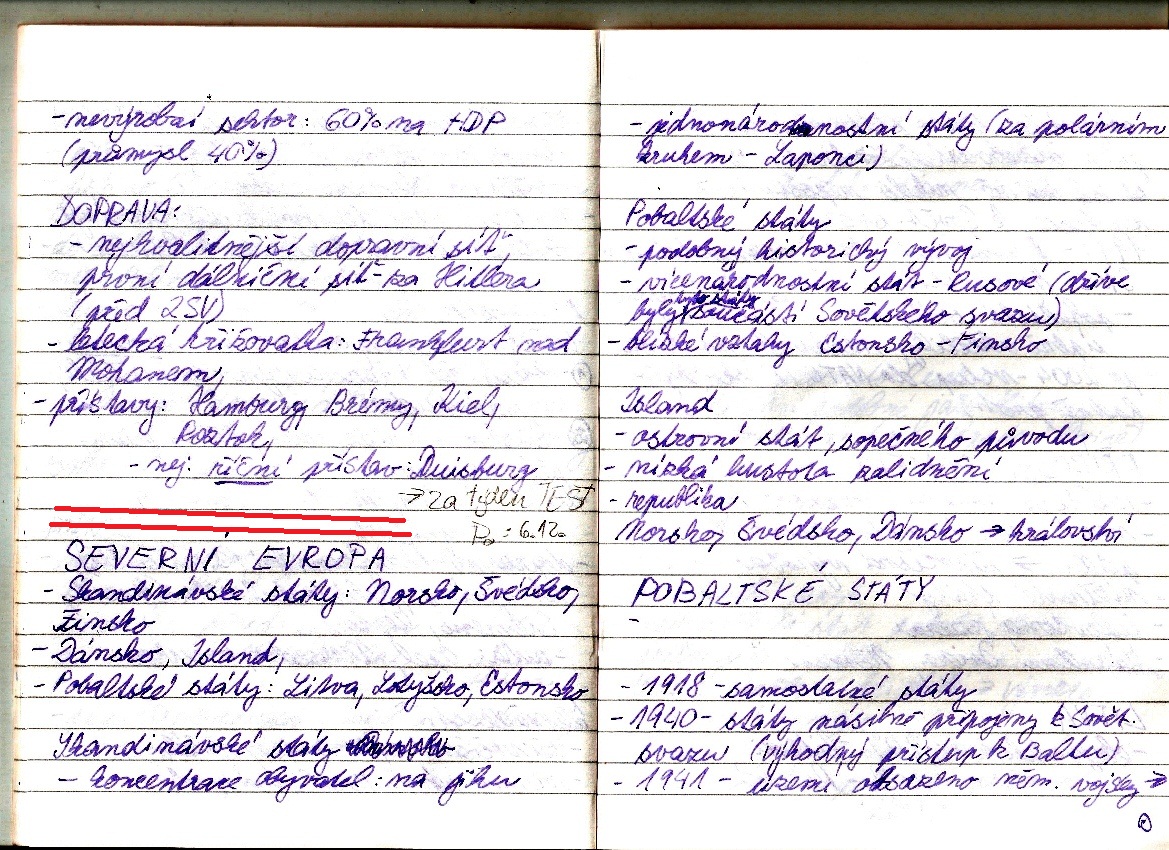 - nevýrobní sektor: 60% na HDP
(průmysl 40%)
DOPRAVA:
- nejkvalitnější dopravní síť
první dálniční síť za Hitlera
(před 2SV)
- letecká křižovatka: Frankfurt nad
Mohanem,
- přístavy: Hamburg, Brémy, Kiel,
Roztok,
- nej. říční přístav: Duisburg
→ za týden TEST
Po = 6.12.
SEVERNÍ EVROPA
- Skandinávské státy: Norsko, Švédsko,
Finsko
- Dánsko, Island,
- Pobaltské státy: Litva, Lotyšsko, Estonsko
Skandinávské státy
- koncentrace obyvatel: na jihu
- jednonárodnostní státy (za polárním
kruhem - Laponci)
Pobaltské státy
- podobný historický vývoj
- vícenárodnostní stát - Rusové (dříve
byly tyto státy součástí Sovětského svazu)
- blízké vztahy Estonsko - Finsko
Island
- ostrovní stát, sopečného původu
- nízká hustota zalidnění
- republika
Norsko, Švédsko, Dánsko → království
POBALTSKÉ STÁTY
-
- 1918 - samostatné státy
- 1940 - státy násilně připojeny k Sovět.
svazu (výhodný přístup k Baltu)
- 1941 - území obsazeno něm. vojsky →